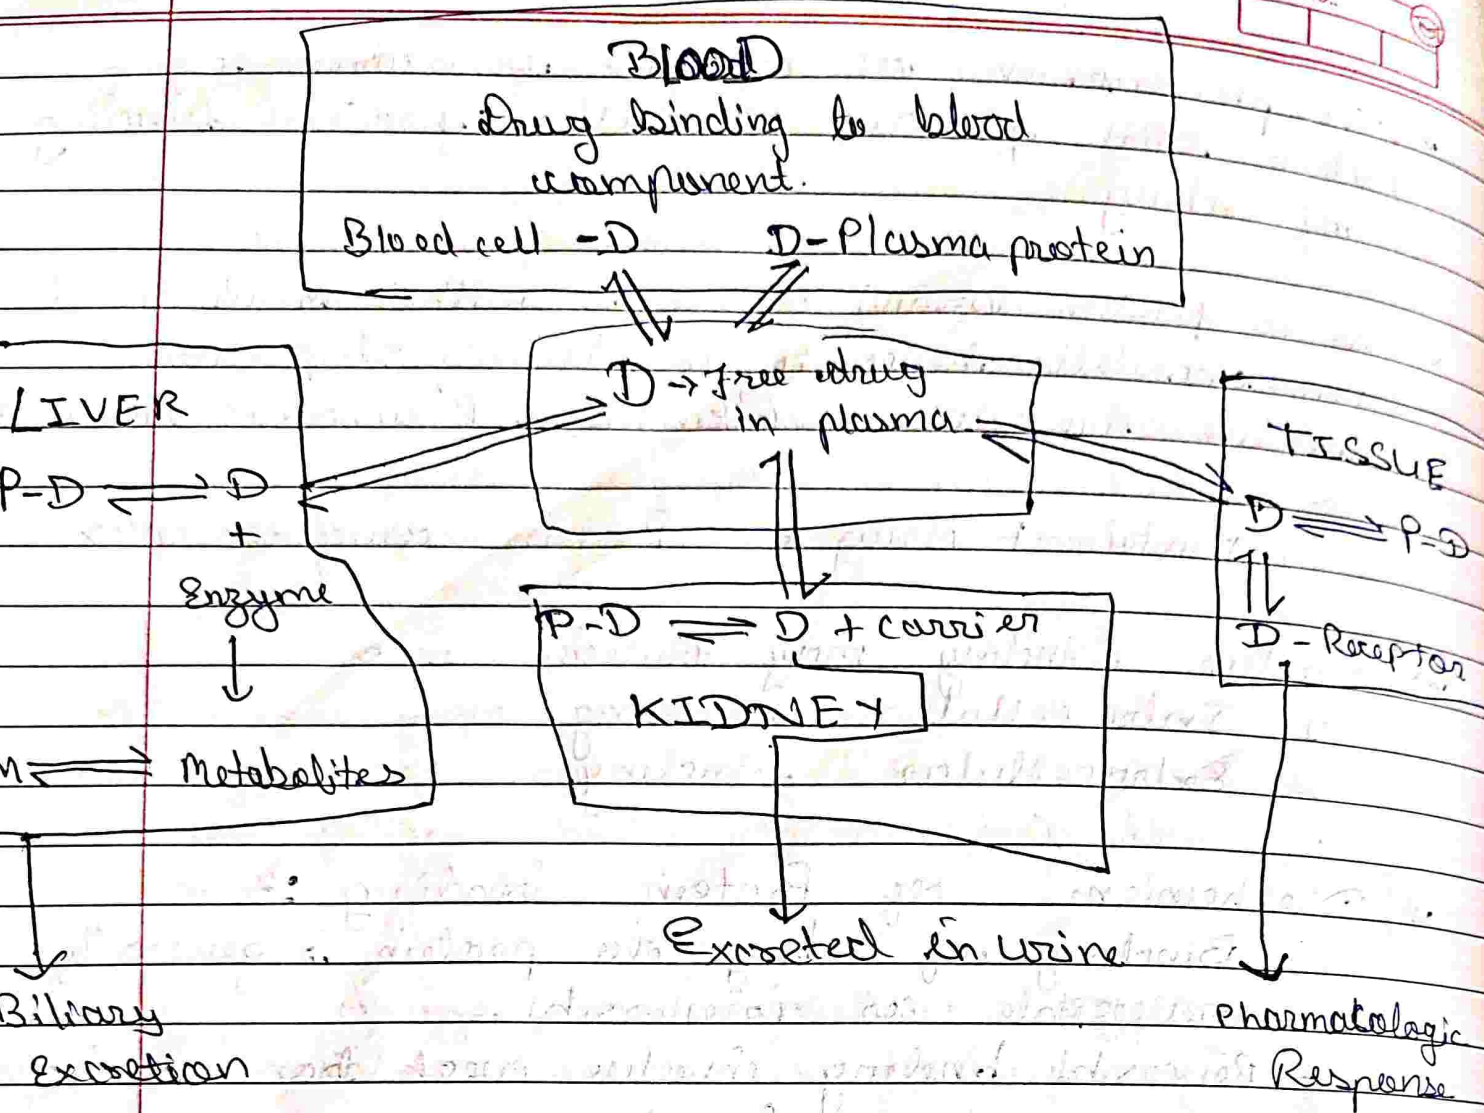 BLOOD
Drug binding to blood
component.
Blood cell - D
D - Plasma protein
D → Free drug
in plasma
LIVER
P-D ⇌ D
+
Enzyme
↓
M ⇌ Metabolites
Biliary
Excretion
P-D ⇌ D + carrier
KIDNEY
Excreted in urine
TISSUE
D ⇌ P-D
D - Receptor
Pharmatologic
Response